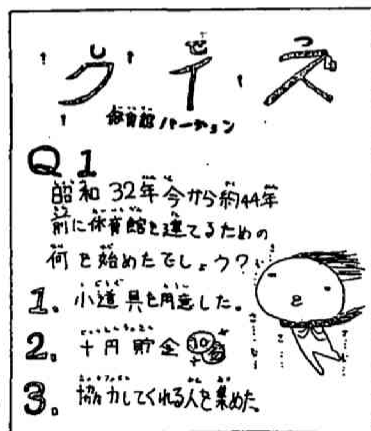 クイズ
体育館バージョン
Q1
昭和32年今から約44年
前に体育館を建てるための
何を始めたでしょう?
1. 小道具を用意した。
2. 十円貯金
3. 協力してくれる人を集めた